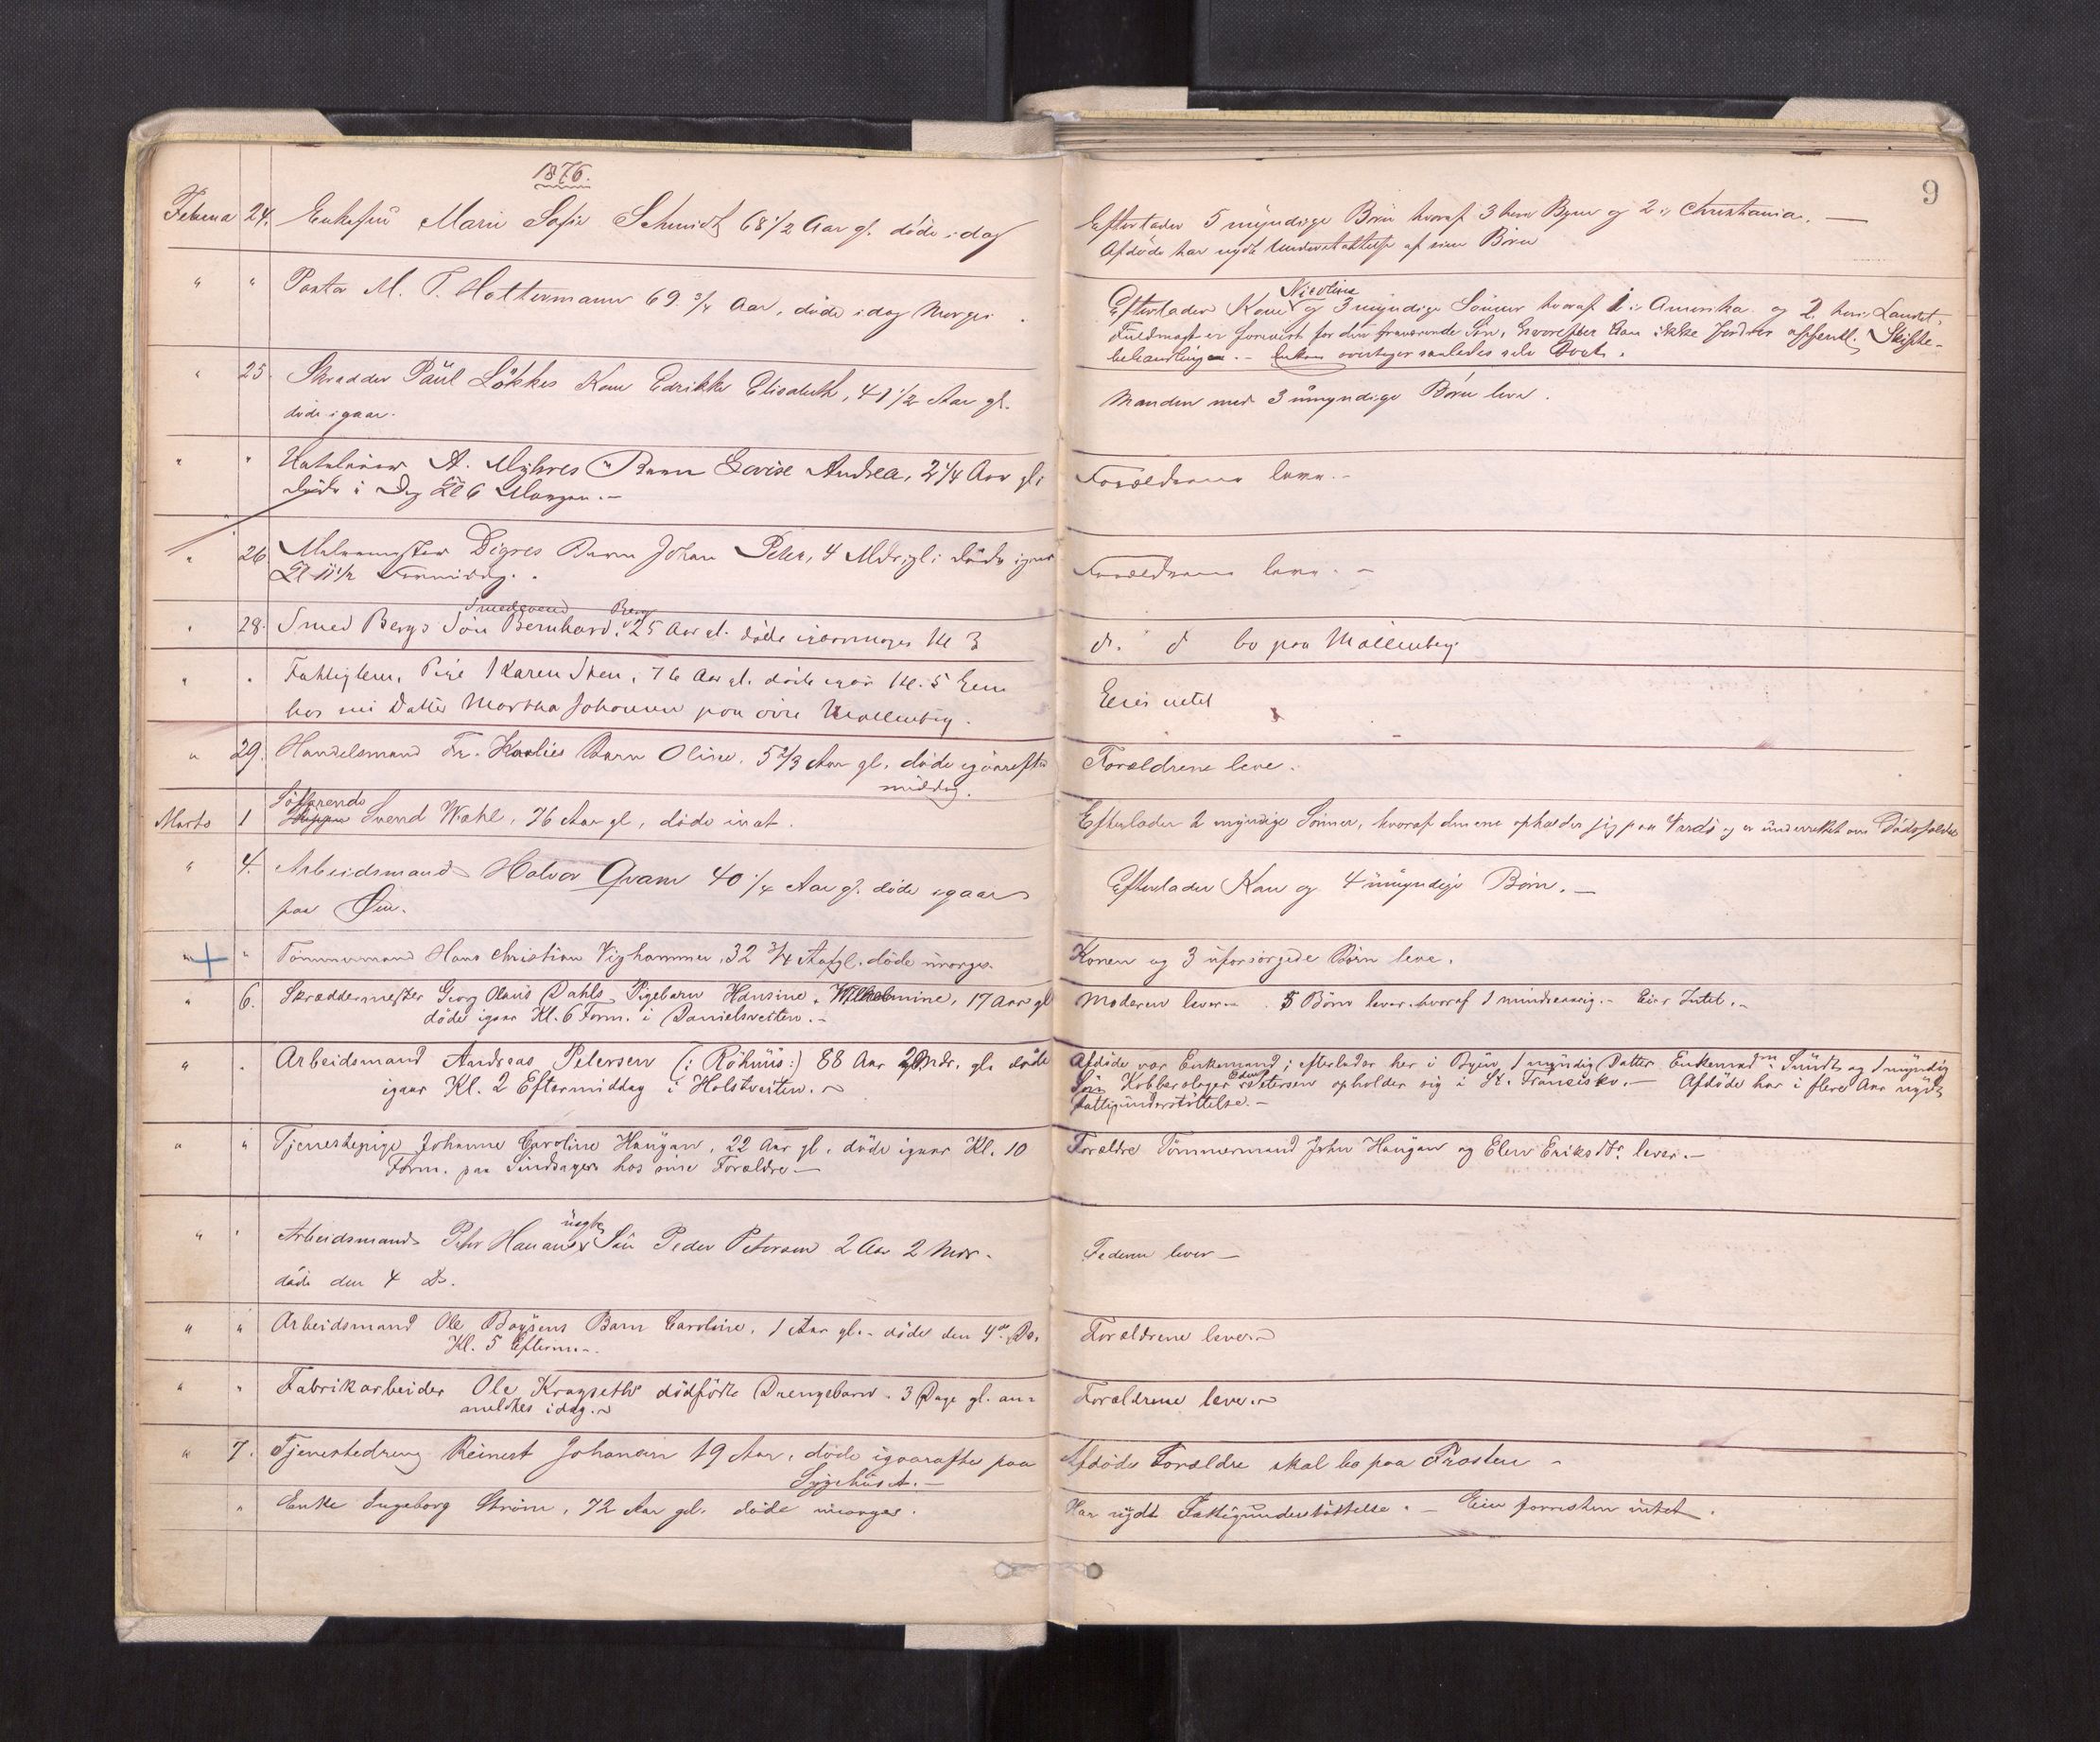 1876.
9
Februa 24. Enkefru Marie Sofie Schmidt 68 1/2 Aar gl. döde idag
Efterlader 5 myndige Börn hvoraf 3 her i Byen og 2 i Christiania. —
Afdöde har nydt Understøttelse af sine Börn
" " M. T. Hottermann 69 3/4 Aar, döde idag Morges.
Nicoline
Efterlader Kone og 3 myndige Sönner hvoraf 1 i Amerika og 2 her i Landet,
Fuldmagt er forevist for den fraværende Sön, hvorefter Boet ikke fordrer offentl. Skifte-
behandling. — Enken overtager saaledes selv Boet.
" 25. Skrædder Paul Lökkes Kone Edrikke Elisabeth, 41 1/2 Aar gl.
döde igaar.
Manden med 3 umyndige Börn leve.
" " A. Myhres Barn Lovise Andrea, 2 1/4 Aar gl.
döde i Dag Kl 6 Morgen. —
Forældrene leve. —
" 26 Malermester Digres Barn Johan Peter, 4 Mdr. gl. döde igaar
Kl 11 1/2 Formiddag.
Forældrene leve. —
Smedsvend Berg
" 28. Smed Bergs Sön Bernhard, 25 Aar gl. döde imorges Kl 3
d. d bo paa Möllenberg
" " Fattiglem, Pige Karen Sten, 76 Aar gl. döde igaar Kl. 5 Em
hos sin Datter Martha Johanne paa övre Möllenberg.
Eier intet
" 29. Handelsmand Fr. Barn Oline, 5 2/3 Aar gl. döde igaarefter
middag.
Forældrene leve.
Söfarende
Marts 1 Skipper Svend Wahl, 76 Aar gl, döde inat.
Efterlader 2 myndige Sönner, hvoraf den ene opholder sig paa Vardö og er underrettet om Dödsfaldet
" 4. Arbeidsmand Halvor Qvam 40 1/4 Aar gl. döde igaar
paa Öen.
Efterlader Kone og 4 umyndige Börn. —
" " Tömmermand Hans Christian Vighammer, 32 3/4 Aar gl. döde imorges.
Konen og 3 uforsörgede Börn leve.
" 6. Skræddermester Georg Olaus Dahls Pigebarn Hansine Wilhelmine, 17 Aar gl
döde igaar Kl. 6 Form. i Danielsveiten. —
Moderen lever. 5 Börn lever hvoraf 1 mindreaarig. — Eier Intet. —
" " Arbeidsmand Andreas Petersen (: Röhuus :) 88 Aar 2 Mdr. gl. döde
igaar Kl. 2 Eftermiddag i Holstveiten.
Afdöde var Enkemand; efterlader her i Byen 1 myndig Datter Enkemad.m Sundt og 1 myndig
Sön Kobberslager Petersen opholder sig i St. Francisko. — Afdöde har i flere Aar nydt
Fattigunderstöttelse. —
" " Tjenestepige Johanne Caroline Haugan, 22 Aar gl. döde igaar Kl. 10
Form. paa hos sine Forældre —
Forældre Tömmermand John Haugan og Elen Eriksdtr. lever. —
uægte
" " Arbeidsmand Peter Hanans Sön Peder Petersen 2 Aar 2 Mdr.
döde den 4 ds.
Faderen lever —
" " Arbeidsmand Ole Boysens Barn Caroline, 1 Aar gl. — döde den 4de ds.
Kl. 5 Efterm. —
Forældrene lever.
" " Fabrikarbeider Ole Kragseths dödfödte Drengebarn. 3 Dage gl. an-
meldtes idag.
Forældrene lever.
" 7. Tjenestedreng Reinert Johansen 19 Aar, döde igaaraftes paa
Sygehuset. —
Afdödes Forældre skal bo paa Frosten —
" Enke Ingeborg Ström, 72 Aar gl. döde imorges.
Har nydt Fattigunderstöttelse. — Eier forresten intet.